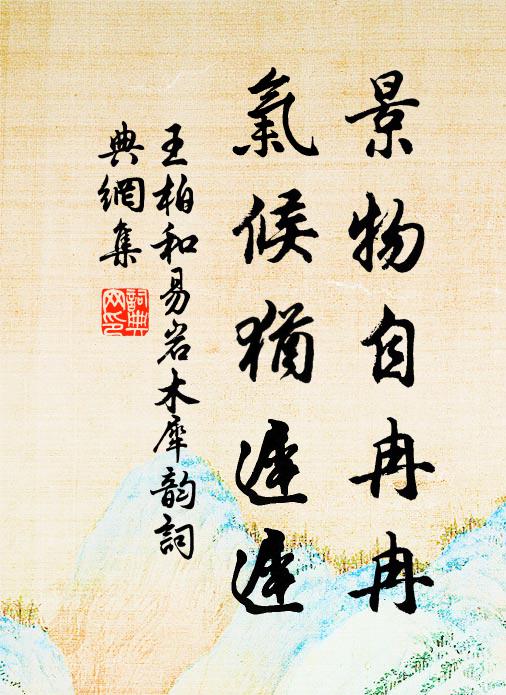 景物自冉冉
氣候猶遲遲
王柏和易岩木犀韵詞
典網集
詞典
网印